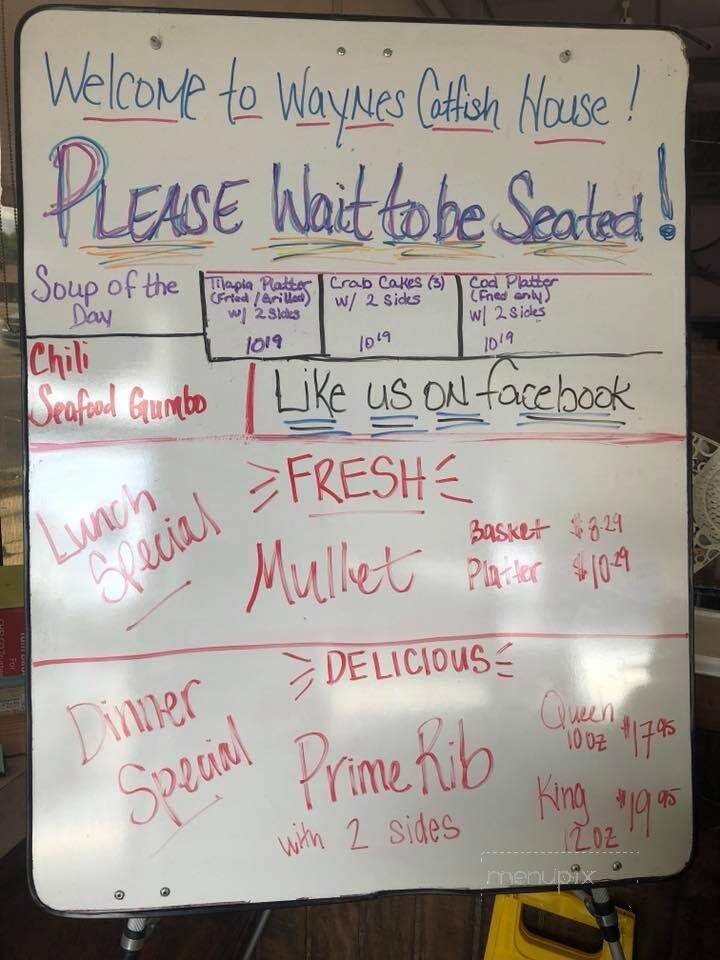 Welcome to Waynes Catfish House!
Please Wait to be Seated!
Soup of the
Day
Chili
Seafood Gumbo
Tilapia Platter
(Fried/Grilled)
w/ 2 Sides
10¹⁹
Crab Cakes (3)
w/ 2 Sides
10¹⁹
Cod Platter
(Fried only)
w/ 2 Sides
10¹⁹
Like us on facebook
Lunch
Special
FRESH
Mullet
Basket $8.29
Platter $10.29
Dinner
Special
DELICIOUS
Prime Rib
with 2 sides
Queen
10oz $17⁹⁵
King $19⁹⁵
12oz
menupix